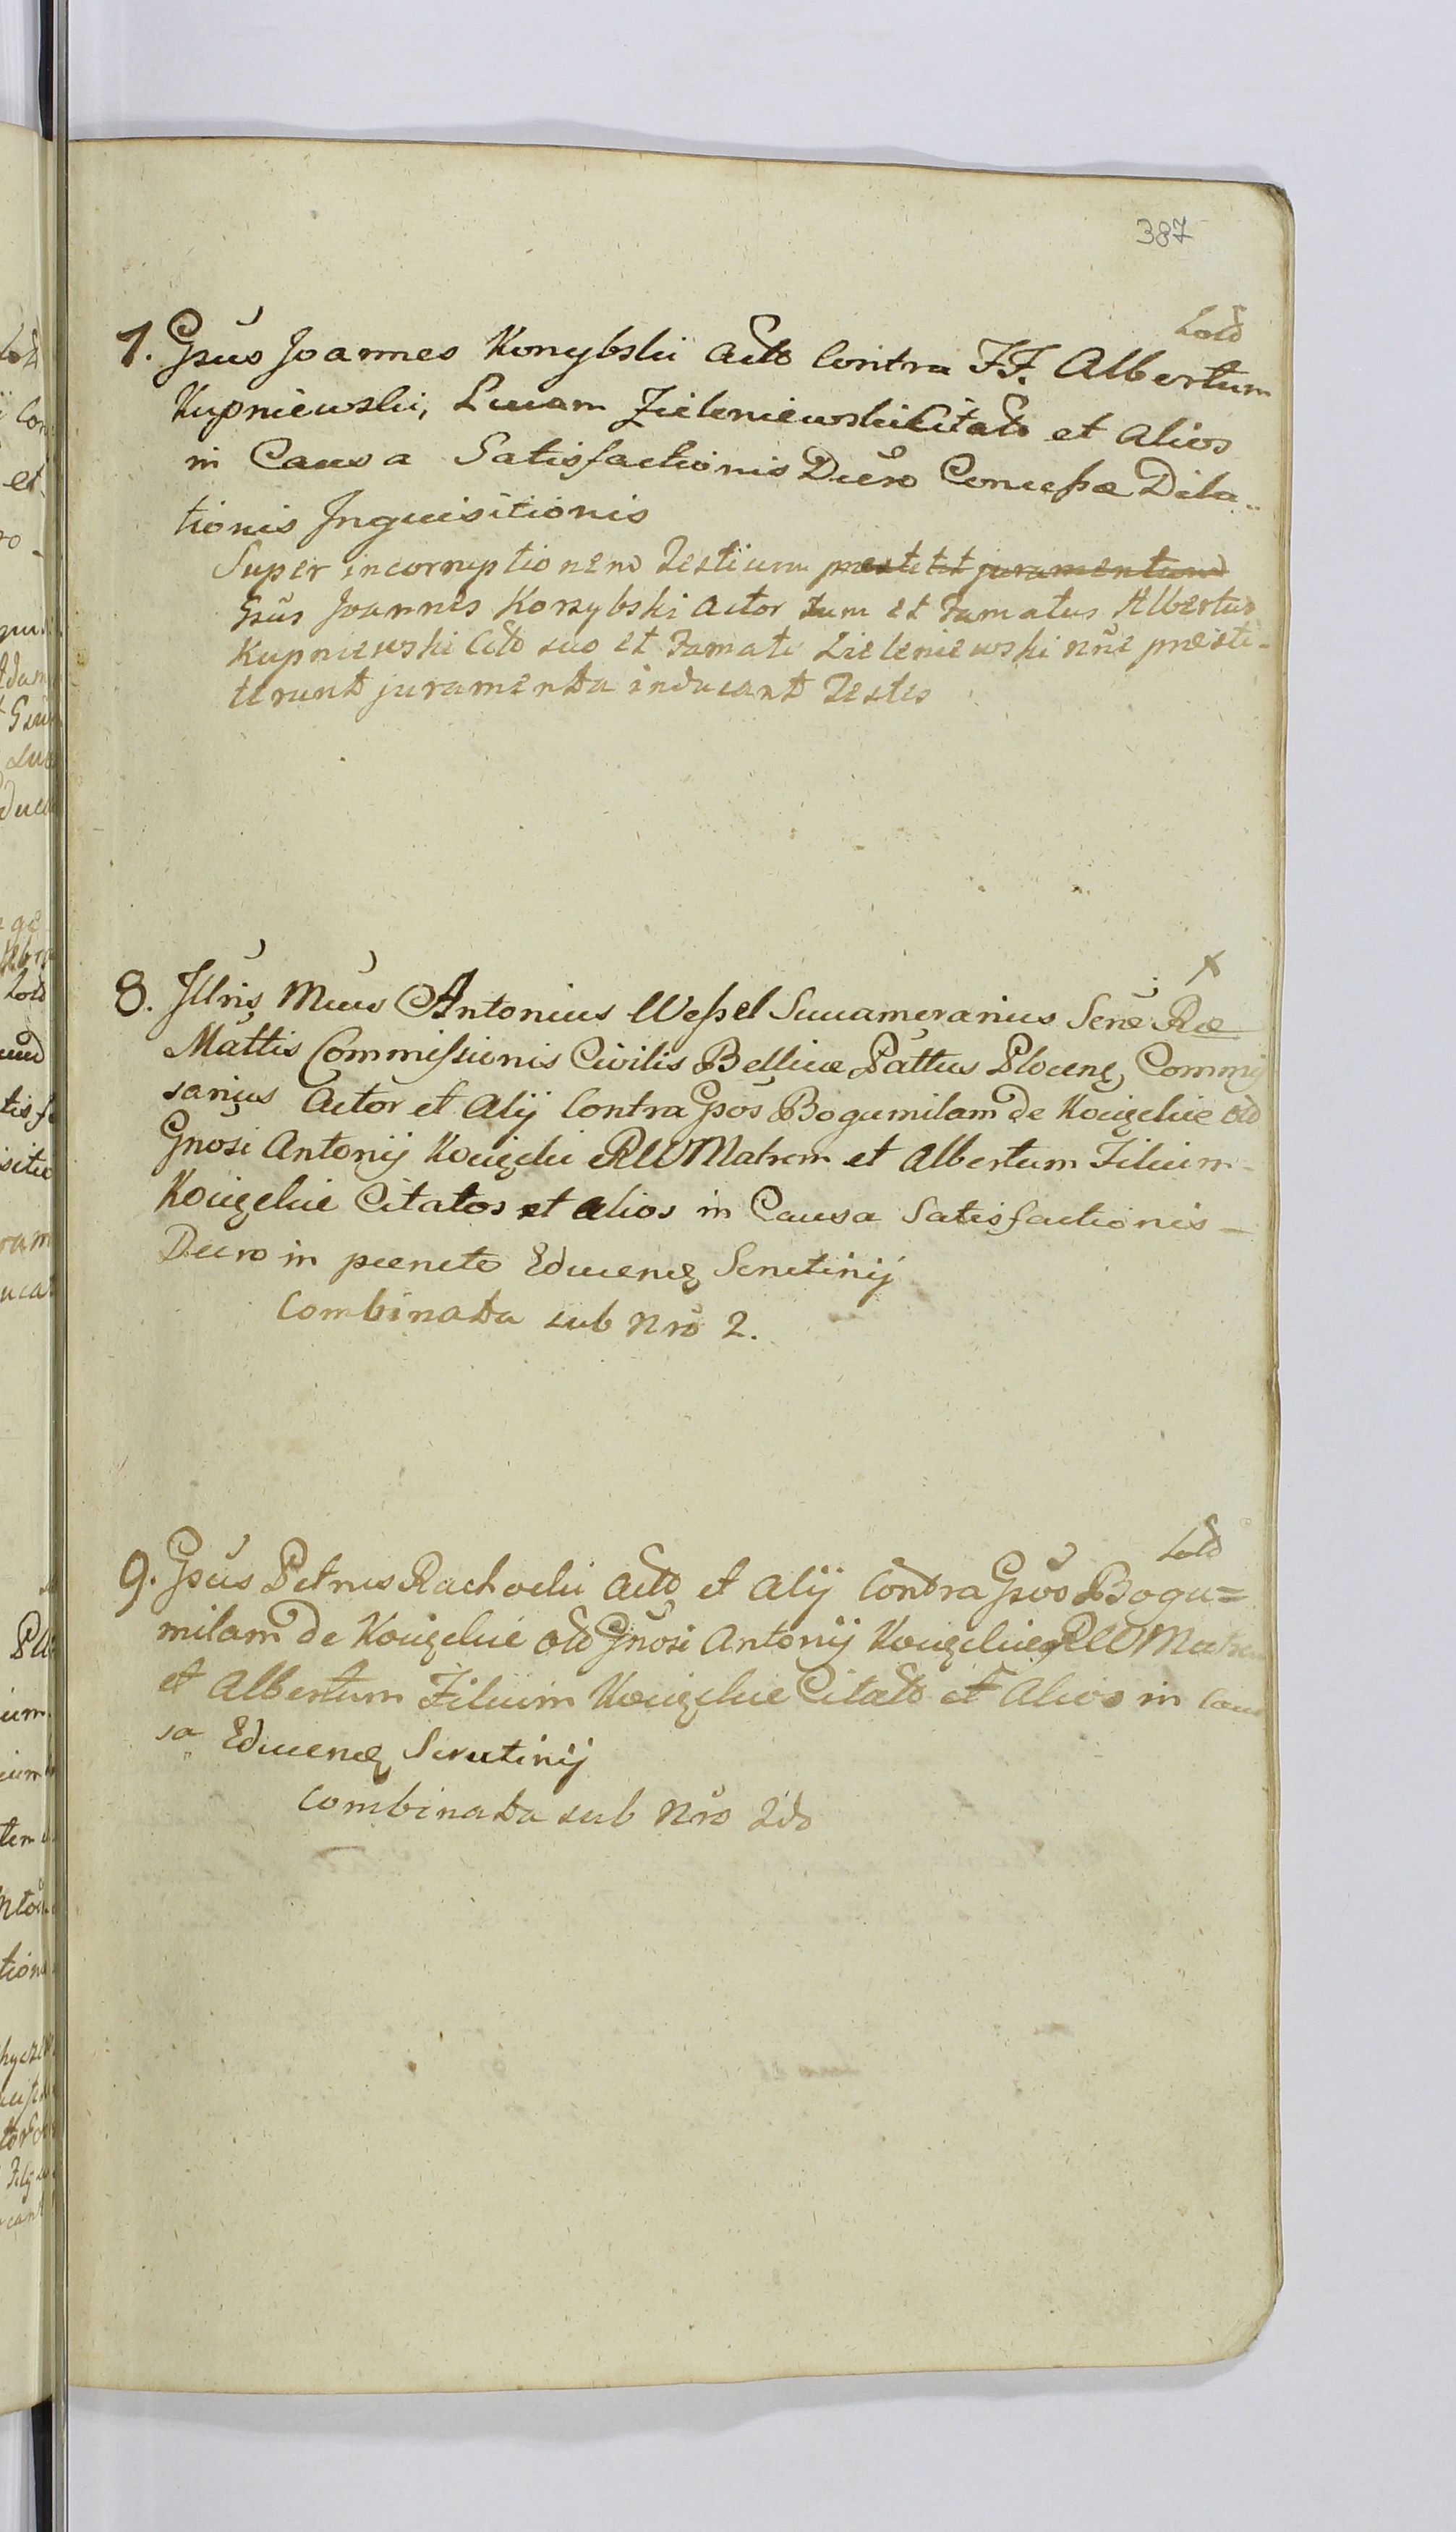 387
Lold
7. Gsus Joannes Konybski Acto Contra FF. Albertum
Kupniewski, Lucam Zieleniewski Citato et Alios
in Causa Satisfactionis Decro Concessæ Dila-
tionis Inquisitionis
Super incorruptionem Testium prestetit juramentum
Gsus Joannes Korzybski Actor tum et Famatus Albertus
Kupniewski Citto suo et Famati Zieleniewski nne præsti-
terunt juramenta inducant Testes
x
8. Illris Mcus Antonius Wessel Succamerarius Sene Ræ
Mattis Commissionis Civilis Bellicæ Pattus Plocens Commis
sarius Actor et Alij Contra Gsos Bogumilam de
Gnosi Antonij Matrem et Albertum Filium
Citatos et alios in Causa Satisfactionis
Decro in puncto Educend Scrutinij
Combinata sub Nro 2.
Lold
9. Gsus Petrus Rachocki Acto et Alij Contra Gsos Bogu=
milam de Gnosi Antonij Matrem
et Albertum Filium Citato et Alios in Cau
sa Educend Scrutinij
Combinata sub Nro 2do